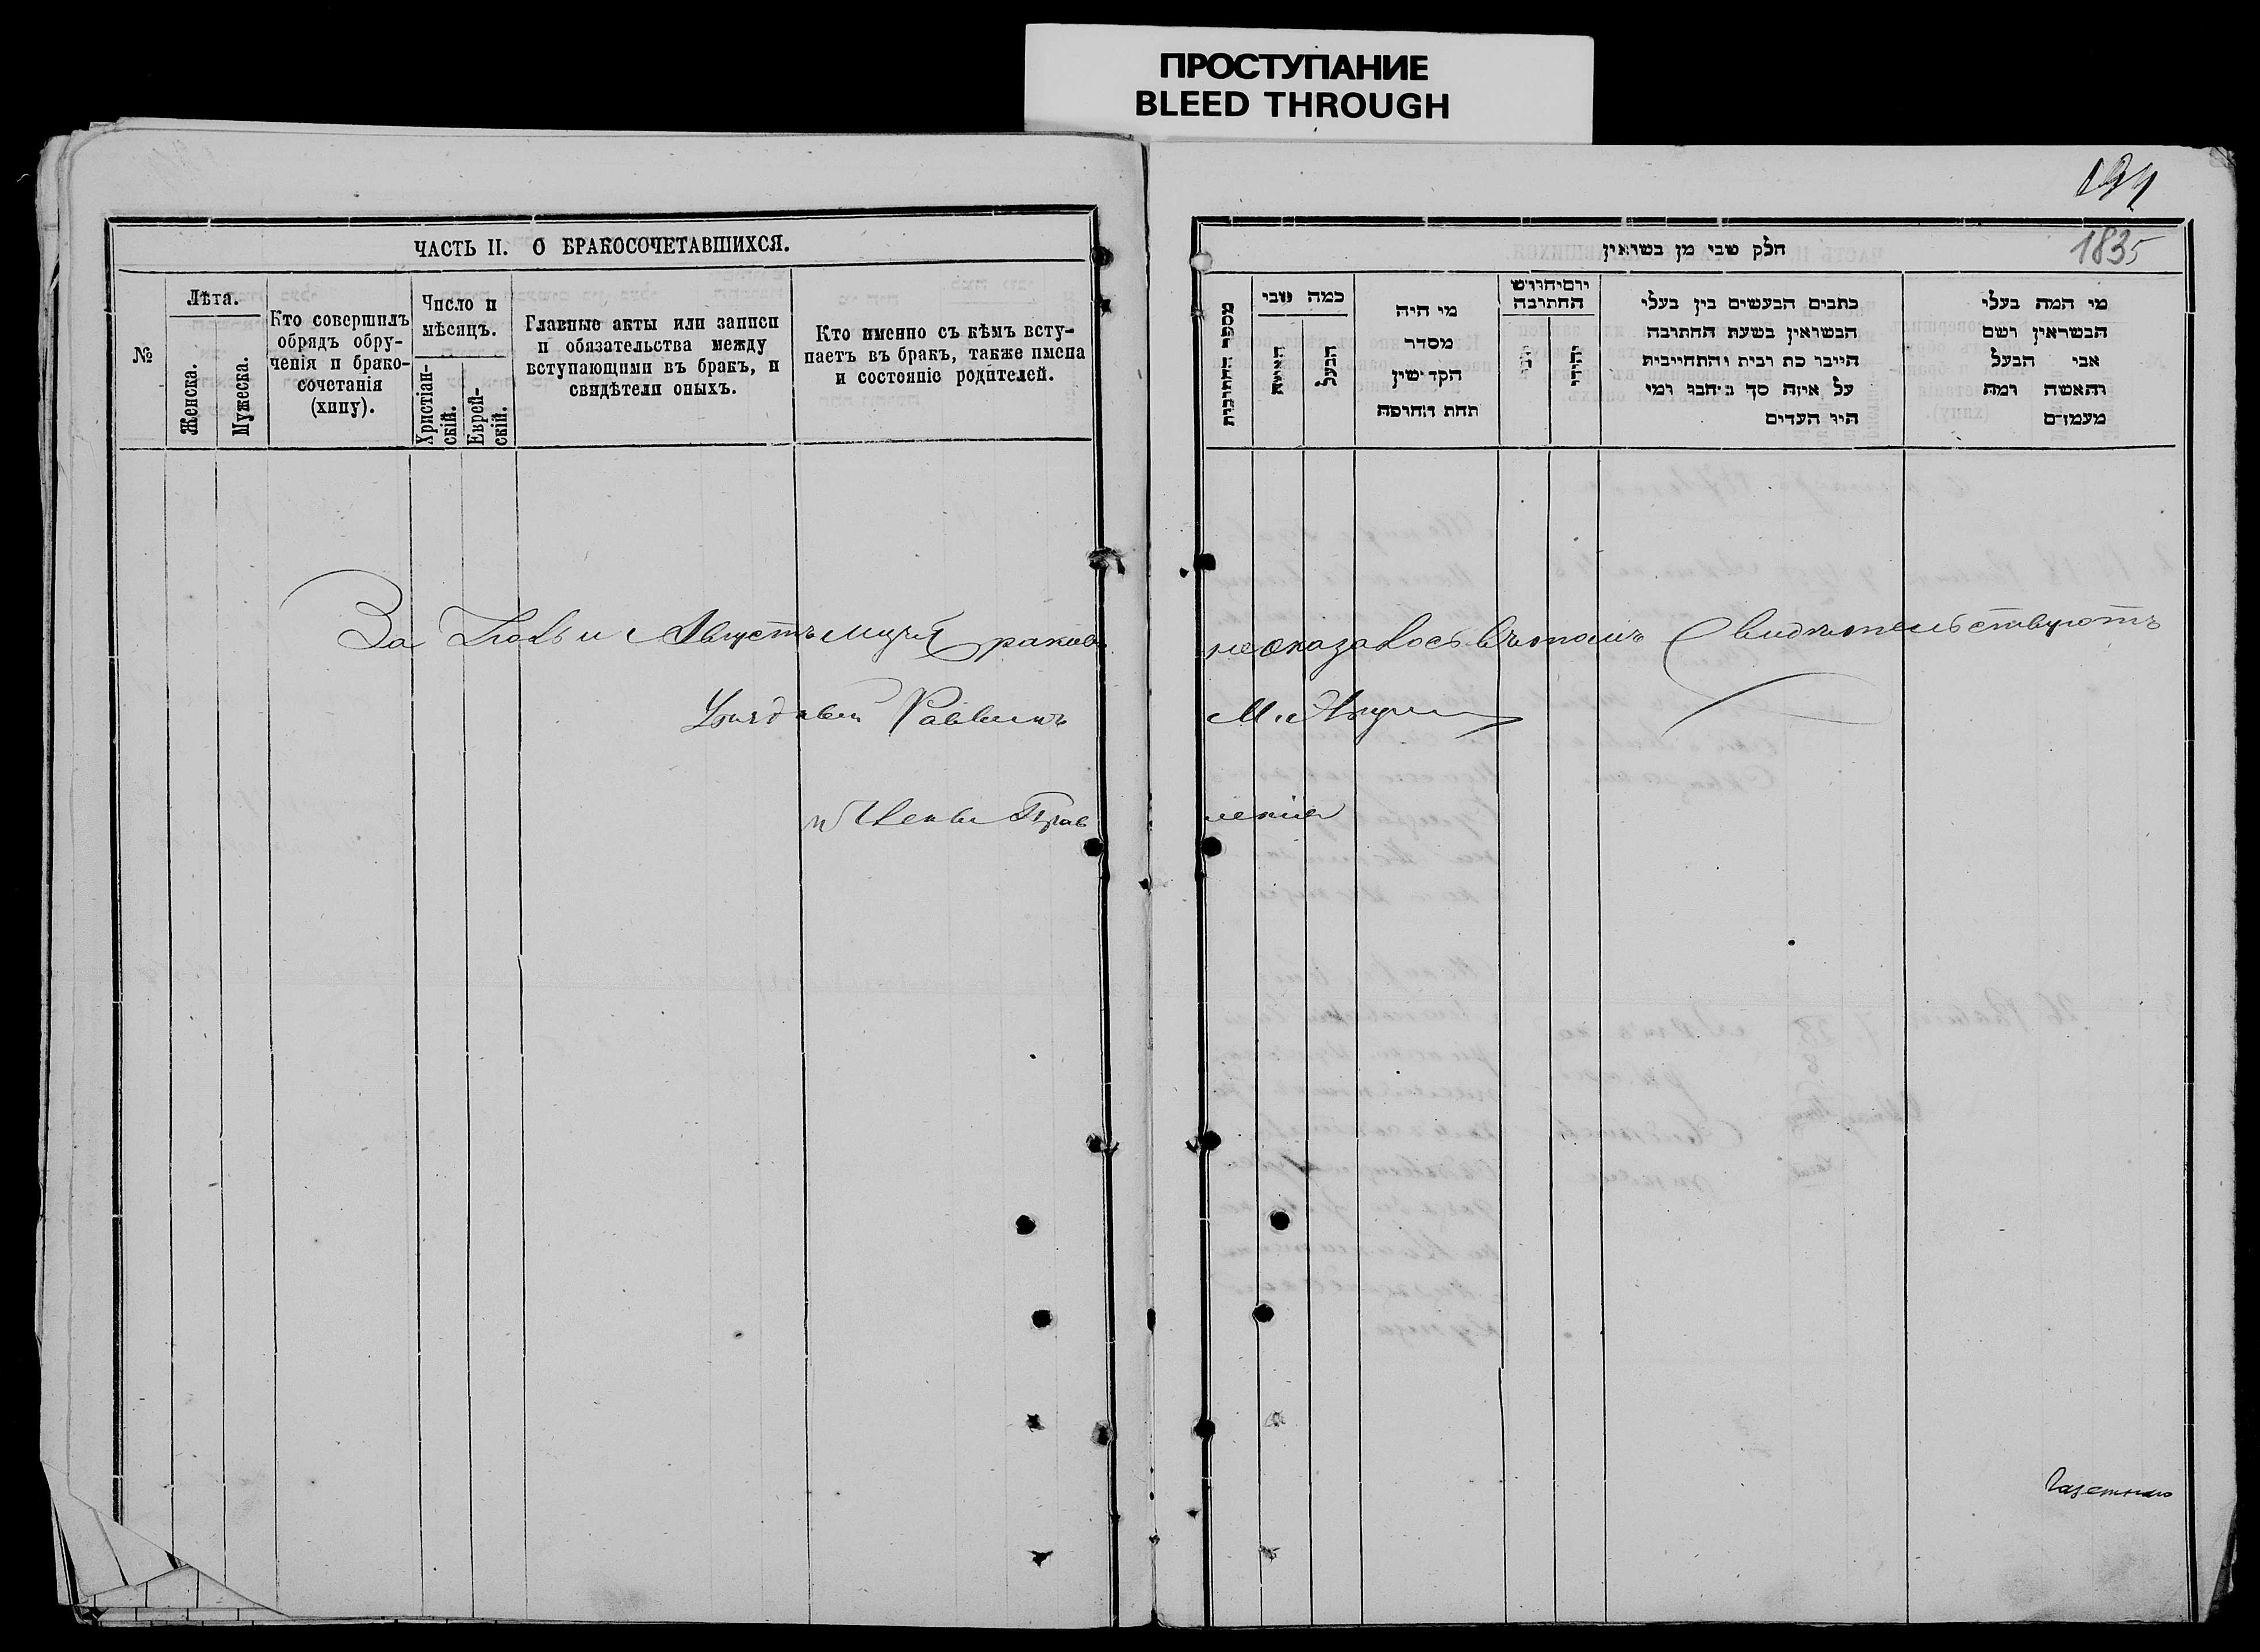 ПРОСТУПАНИЕ
BLEED THROUGH
ЧАСТЬ II. О БРАКОСОЧЕТАВШИХСЯ.
№
Лѣта.
Женска.
Мужеска.
Кто совершилъ
обрядъ обру-
ченія и брако-
сочетанія
(хипу).
Число и
мѣсяцъ.
Христіан-
скій.
Еврей-
скій.
Главные акты или записи
и обязательства между
вступающими въ бракъ, и
свидѣтели оныхъ.
Кто именно съ кѣмъ всту-
паетъ въ бракъ, также имена
и состояніе родителей.
1835
חלק שני מן נשואין
מספר החתונות
כמה שני
האשה
הבעל
מי היה
מסדר
הקדישין
תחת החופה
יום וחודש
החתונה
נוצרי
יהודי
כתבים הנעשים בין בעלי
הנשואין בשעת החתונה
היינו כת רבית והתחייבית
על איזה סך ביניהם ומי
היו העדים
מי המה בעלי
הנשואין ושם
אבי הבעל
והאשה ומה
מעמדם
За Іюль и Августъ мцъ Браковъ не оказалось въ томъ Свидѣтельствуютъ
Уѣздный Раввинъ М.
и Члены Правленія